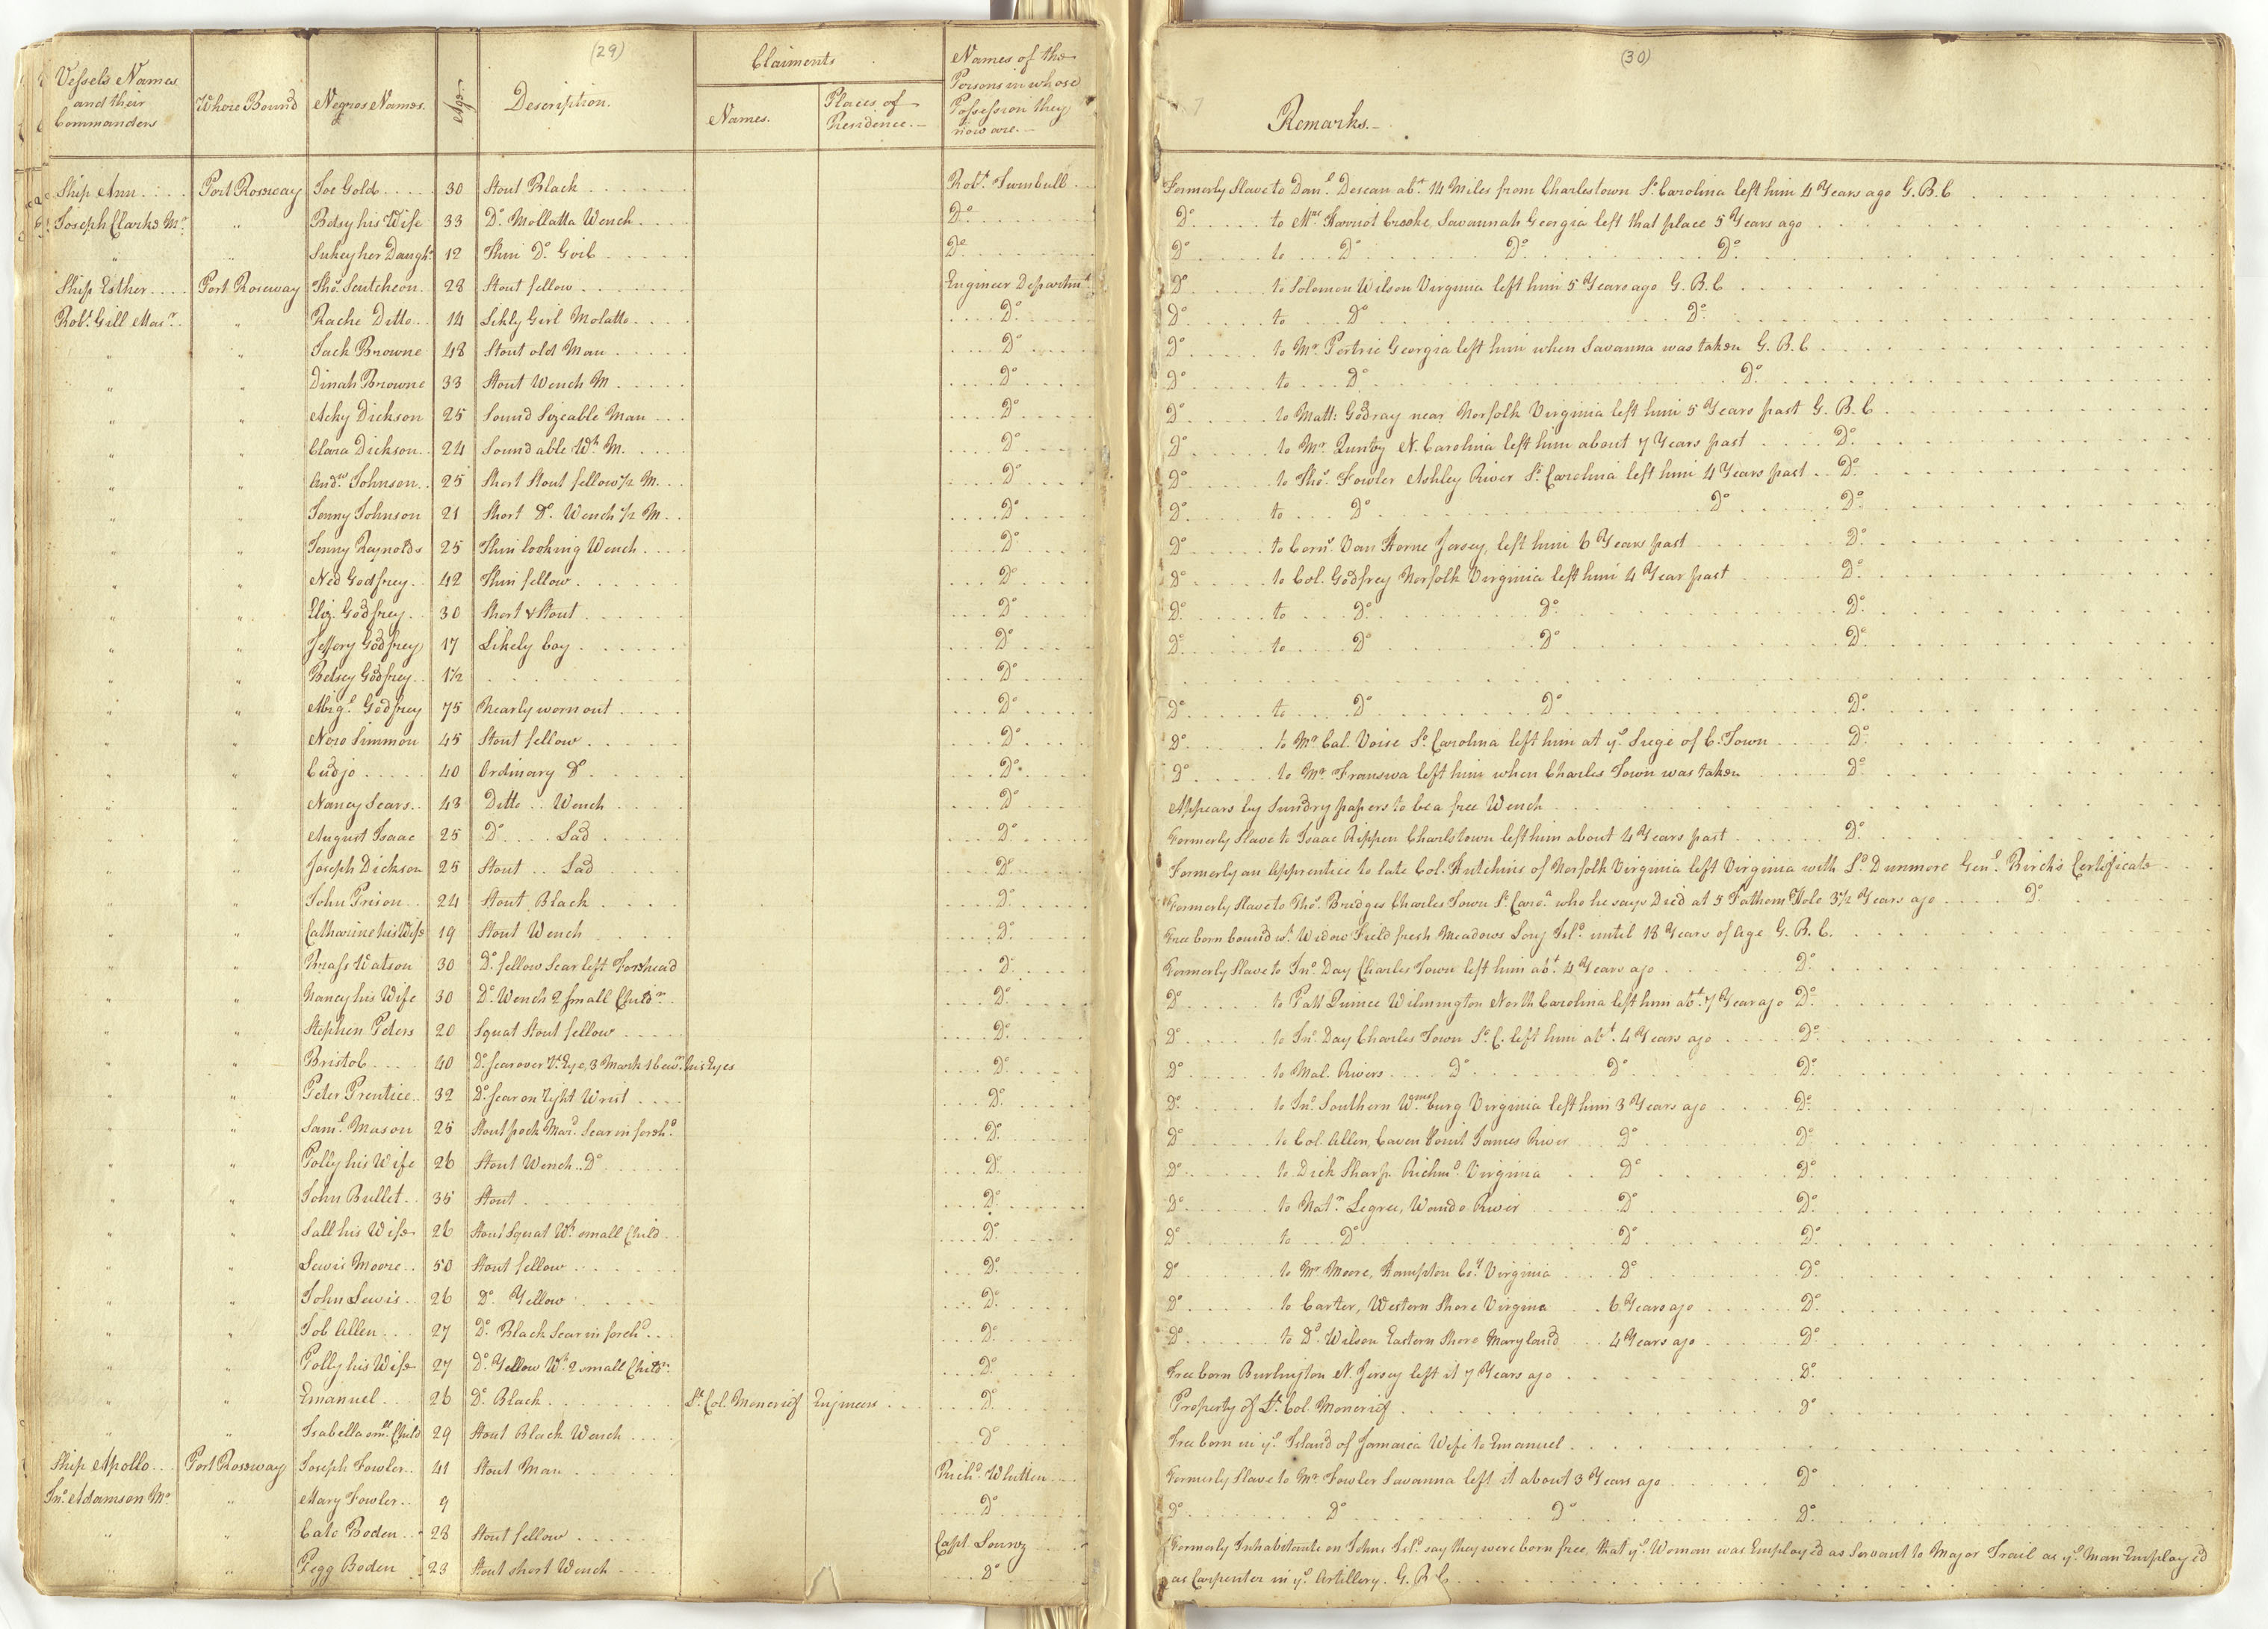 (29)
Vessels Names and their Commanders | Where Bound | Negroes Names. | Age. | Description. | Claiments Names. | Places of Residence. | Names of the Persons in whose Possession they now are.
Ship Ann | Port Roseway | Joe Gold | 30 | Stout Black | Robt. Turnbull
Joseph Clarke Mr. | " | Betsy his Wife | 33 | Do. Mollatta Wench | Do.
" | " | Sukey her Daughr. | 12 | Thin Do. Girl | Do.
Ship Esther | Port Roseway | Thos. Scutcheon | 28 | Stout fellow | Engineer Departmt.
Robt. Gill Mastr. | " | Rache Ditto | 14 | Likly Girl Molatto | Do.
" | " | Jack Browne | 48 | Stout old Man | Do.
" | " | Dinah Browne | 33 | Stout Wench M. | Do.
" | " | Acky Dickson | 25 | Sound Sizeable Man | Do.
" | " | Clara Dickson | 24 | Sound able Wh. M. | Do.
" | " | Andw. Johnson | 25 | Short Stout fellow 1/2 M. | Do.
" | " | Jenny Johnson | 21 | Short Do. Wench 1/2 M. | Do.
" | " | Jenny Reynolds | 25 | Thin looking Wench | Do.
" | " | Ned Godfrey | 42 | Thin fellow | Do.
" | " | Eliz. Godfrey | 30 | Short & Stout | Do.
" | " | Jeffery Godfrey | 17 | Likely boy | Do.
" | " | Betsey Godfrey | 1 1/2 | Do.
" | " | Abigl. Godfrey | 75 | Nearly worn out | Do.
" | " | Nero Simmon | 45 | Stout fellow | Do.
" | " | Cudjo | 40 | Ordinary Do. | Do.
" | " | Nancy Sears | 43 | Ditto Wench | Do.
" | " | August Isaac | 25 | Do. Lad | Do.
" | " | Joseph Dickson | 25 | Stout Lad | Do.
" | " | John Prison | 24 | Stout Black | Do.
" | " | Catharine his Wife | 19 | Stout Wench | Do.
" | " | Watson | 30 | Do. fellow Scar left Forehead | Do.
" | " | Nancy his Wife | 30 | Do. Wench 2 small Childn. | Do.
" | " | Stephen Peters | 20 | Squat Stout fellow | Do.
" | " | Bristol | 40 | Do. scar over Rt. Eye, 3 Marks his Eyes | Do.
" | " | Peter Prentice | 32 | Do. scar on right Wrist | Do.
" | " | Saml. Mason | 25 | Stout pock Mard. Scar in forehd. | Do.
" | " | Polly his Wife | 26 | Stout Wench Do. | Do.
" | " | John Bullet | 35 | Stout | Do.
" | " | Sall his Wife | 26 | Stout Squat Wh. small Child | Do.
" | " | Lewis Moore | 50 | Stout fellow | Do.
" | " | John Lewis | 26 | Do. Yellow | Do.
" | " | Job Allen | 27 | Do. Black Scar in forehd. | Do.
" | " | Polly his Wife | 27 | Do. Yellow Wh. 2 small Childn. | Do.
" | " | Emanuel | 26 | Do. Black | Lt. Col. Moncrief | Engineers | Do.
" | " | Isabella sml. Child | 29 | Stout Black Wench | Do.
Ship Apollo | Port Roseway | Joseph Fowler | 41 | Stout Man | Richd. Whitten
Jno. Adamson Mr. | " | Mary Fowler | 9 | Do.
" | " | Cato Boden | 28 | Stout fellow | Capt.
" | " | Pegg Boden | 23 | Stout short Wench | Do.
(30)
Remarks.
Formerly Slave to Danl. Desean abt. 14 Miles from Charlestown So. Carolina left him 4 Years ago G. B. C
Do. to Mrs. Harriot Crooke, Savannah Georgia left that place 5 Years ago
Do. to Do. Do. Do.
Do. to Solomon Wilson Virginia left him 5 Years ago G. B. C
Do. to Do. Do.
Do. to Mr. Pertrie Georgia left him when Savanna was taken G. B. C
Do. to Do. Do.
Do. to Matt: Godray near Norfolk Virginia left him 5 Years past G. B. C
Do. to Mr. Quntby N. Carolina left him about 7 Years past Do.
Do. to Thos. Fowler Ashley River So. Carolina left him 4 Years past Do.
Do. to Do. Do. Do.
Do. to Corns. Van Horne Jersey, left him 6 Years past Do.
Do. to Col. Godfrey Norfolk Virginia left him 4 Year past Do.
Do. to Do. Do. Do.
Do. to Do. Do. Do.
Do. to Do. Do. Do.
Do. to Mr. Cal. Voise So. Carolina left him at ye. Siege of C. Town Do.
Do. to Mr. Franswa left him when Charles Town was taken Do.
Appears by Sundry papers to be a free Wench
Formerly Slave to Isaac Rippen Charlstown left him about 4 Years past Do.
Formerly an Apprentice to late Col. Hutchins of Norfolk Virginia left Virginia with Ld. Dunmore Genl. Birch's Certificate
Formerly Slave to Thos. Bridges Charles Town So. Caroa. who he says Died at 5 Fathom Hole 3 1/2 Years ago Do.
Free born bound wt. Widow Field fresh Meadows Long Isld. until 18 Years of Age G. B. C.
Formerly Slave to Jno. Day Charles Town left him abt. 4 Years ago Do.
Do. to Patt Quince Wilmington North Carolina left him abt. 7 Year ago Do.
Do. to Jno. Day Charles Town So. C. left him abt. 4 Years ago Do.
Do. to Mal. Rivers Do. Do. Do.
Do. to Jno. Southern Wmsburg Virginia left him 3 Years ago Do.
Do. to Col. Allen, Caven Point James River Do. Do.
Do. to Dick Sharp Richmd. Virginia Do. Do.
Do. to Natn. Legree, Wando River Do. Do.
Do. to Do. Do. Do.
Do. to Mr. Moore, Hampton Coy. Virginia Do. Do.
Do. to Carter, Western Shore Virginia 6 Years ago Do.
Do. to Dd. Wilson Eastern Shore Maryland 4 Years ago Do.
Free born Burlington N. Jersey left it 7 Years ago Do.
Property of Lt. Col. Moncrief Do.
Free born in ye. Island of Jamaica Wife to Emanuel
Formerly Slave to Mr. Fowler Savanna left it about 3 Years ago Do.
Do. Do. Do. Do.
Formerly Inhabitants on Johns Isld. say they were born free, that ye. Woman was Employ'd as Servant to Major Trail as ye. Man Employ'd
as Carpenter in ye. Artillery. G. B. C